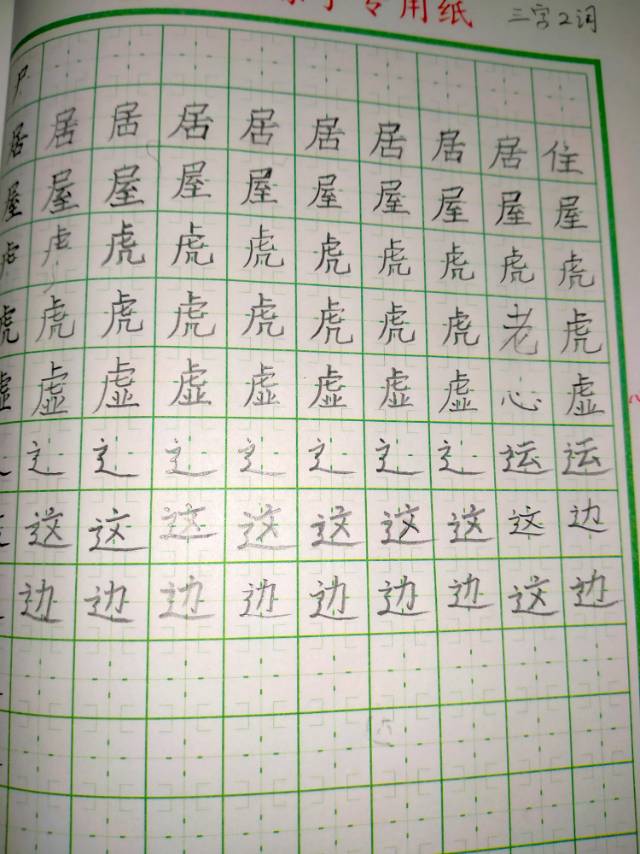 专用纸 三字2词
尸
居居居居居居居居居住
屋屋屋屋屋屋屋屋屋屋
虎虎虎虎虎虎虎虎虎
虎虎虎虎虎虎虎虎老虎
虚虚虚虚虚虚虚虚心虚
辶辶辶辶辶辶辶运运
这这这这这这这这边
边边边边边边边这边